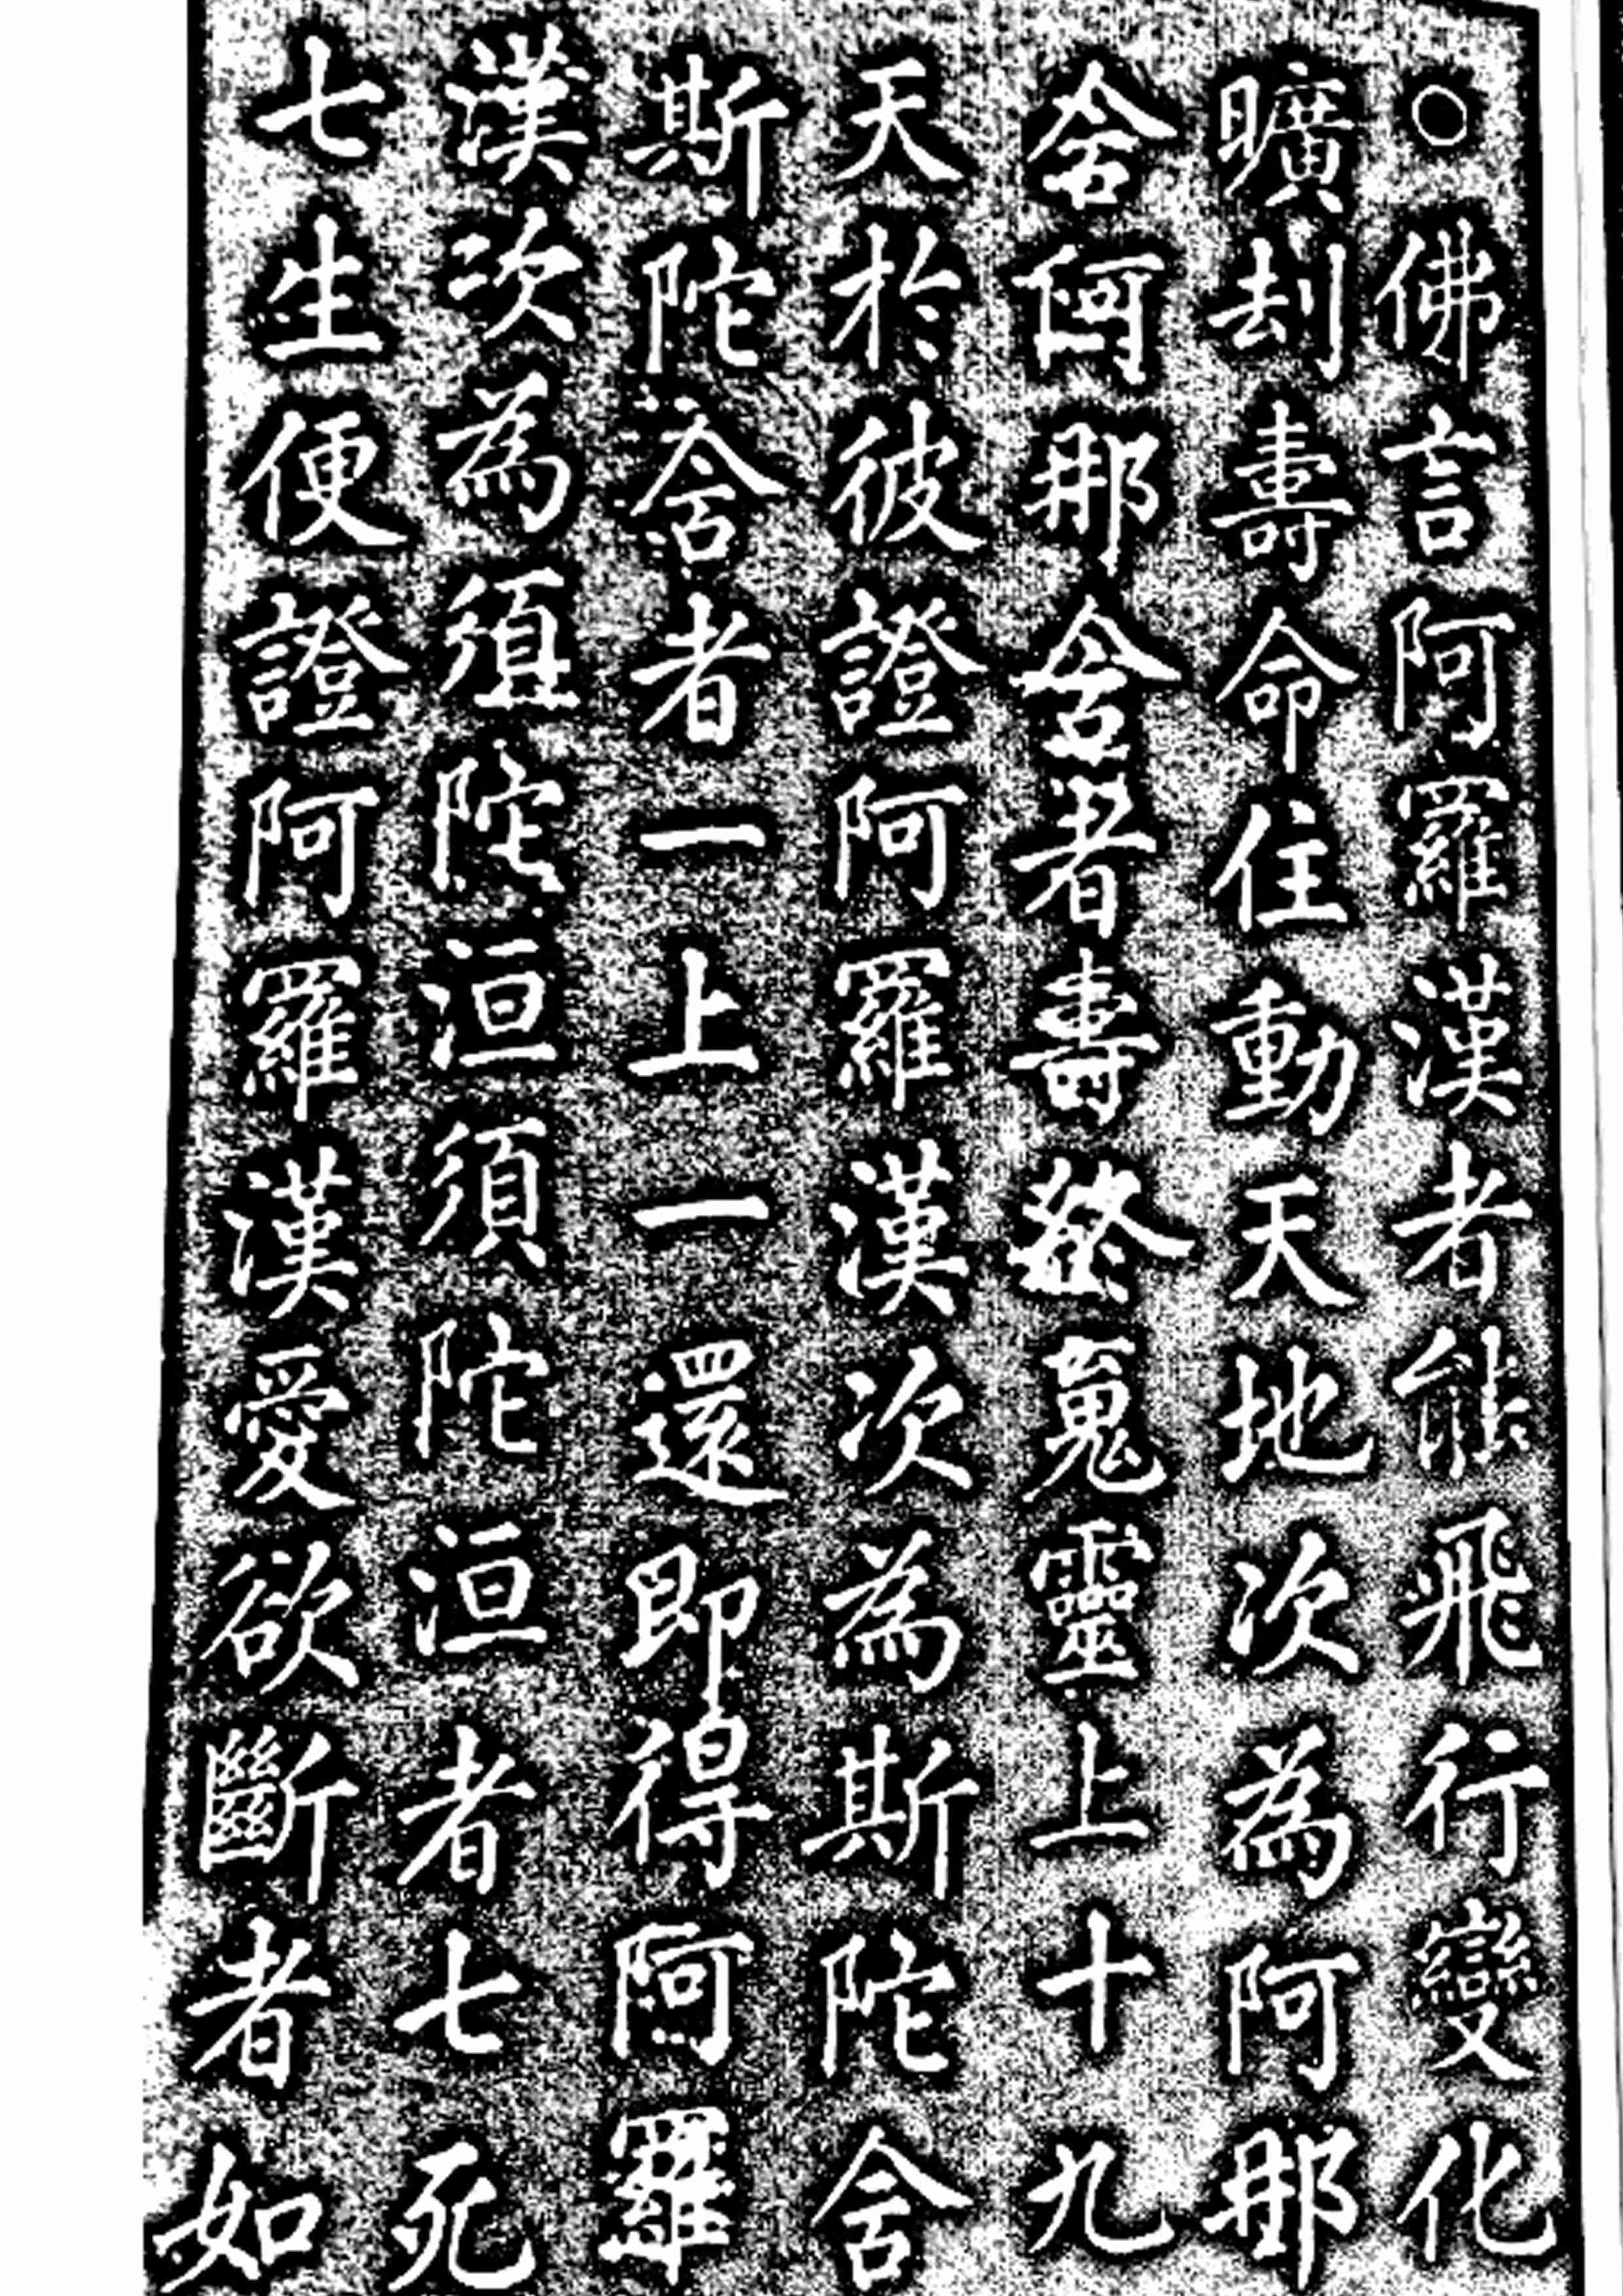 ○佛言阿羅漢者能飛行變化
曠刦壽命住動天地次為阿那
舍阿那舍者壽終䰟靈上十九
天於彼證阿羅漢次為斯陀舍
斯陀舍者一上一還即得阿羅
漢次為須陀洹須陀洹者七死
七生便證阿羅漢愛欲斷者如